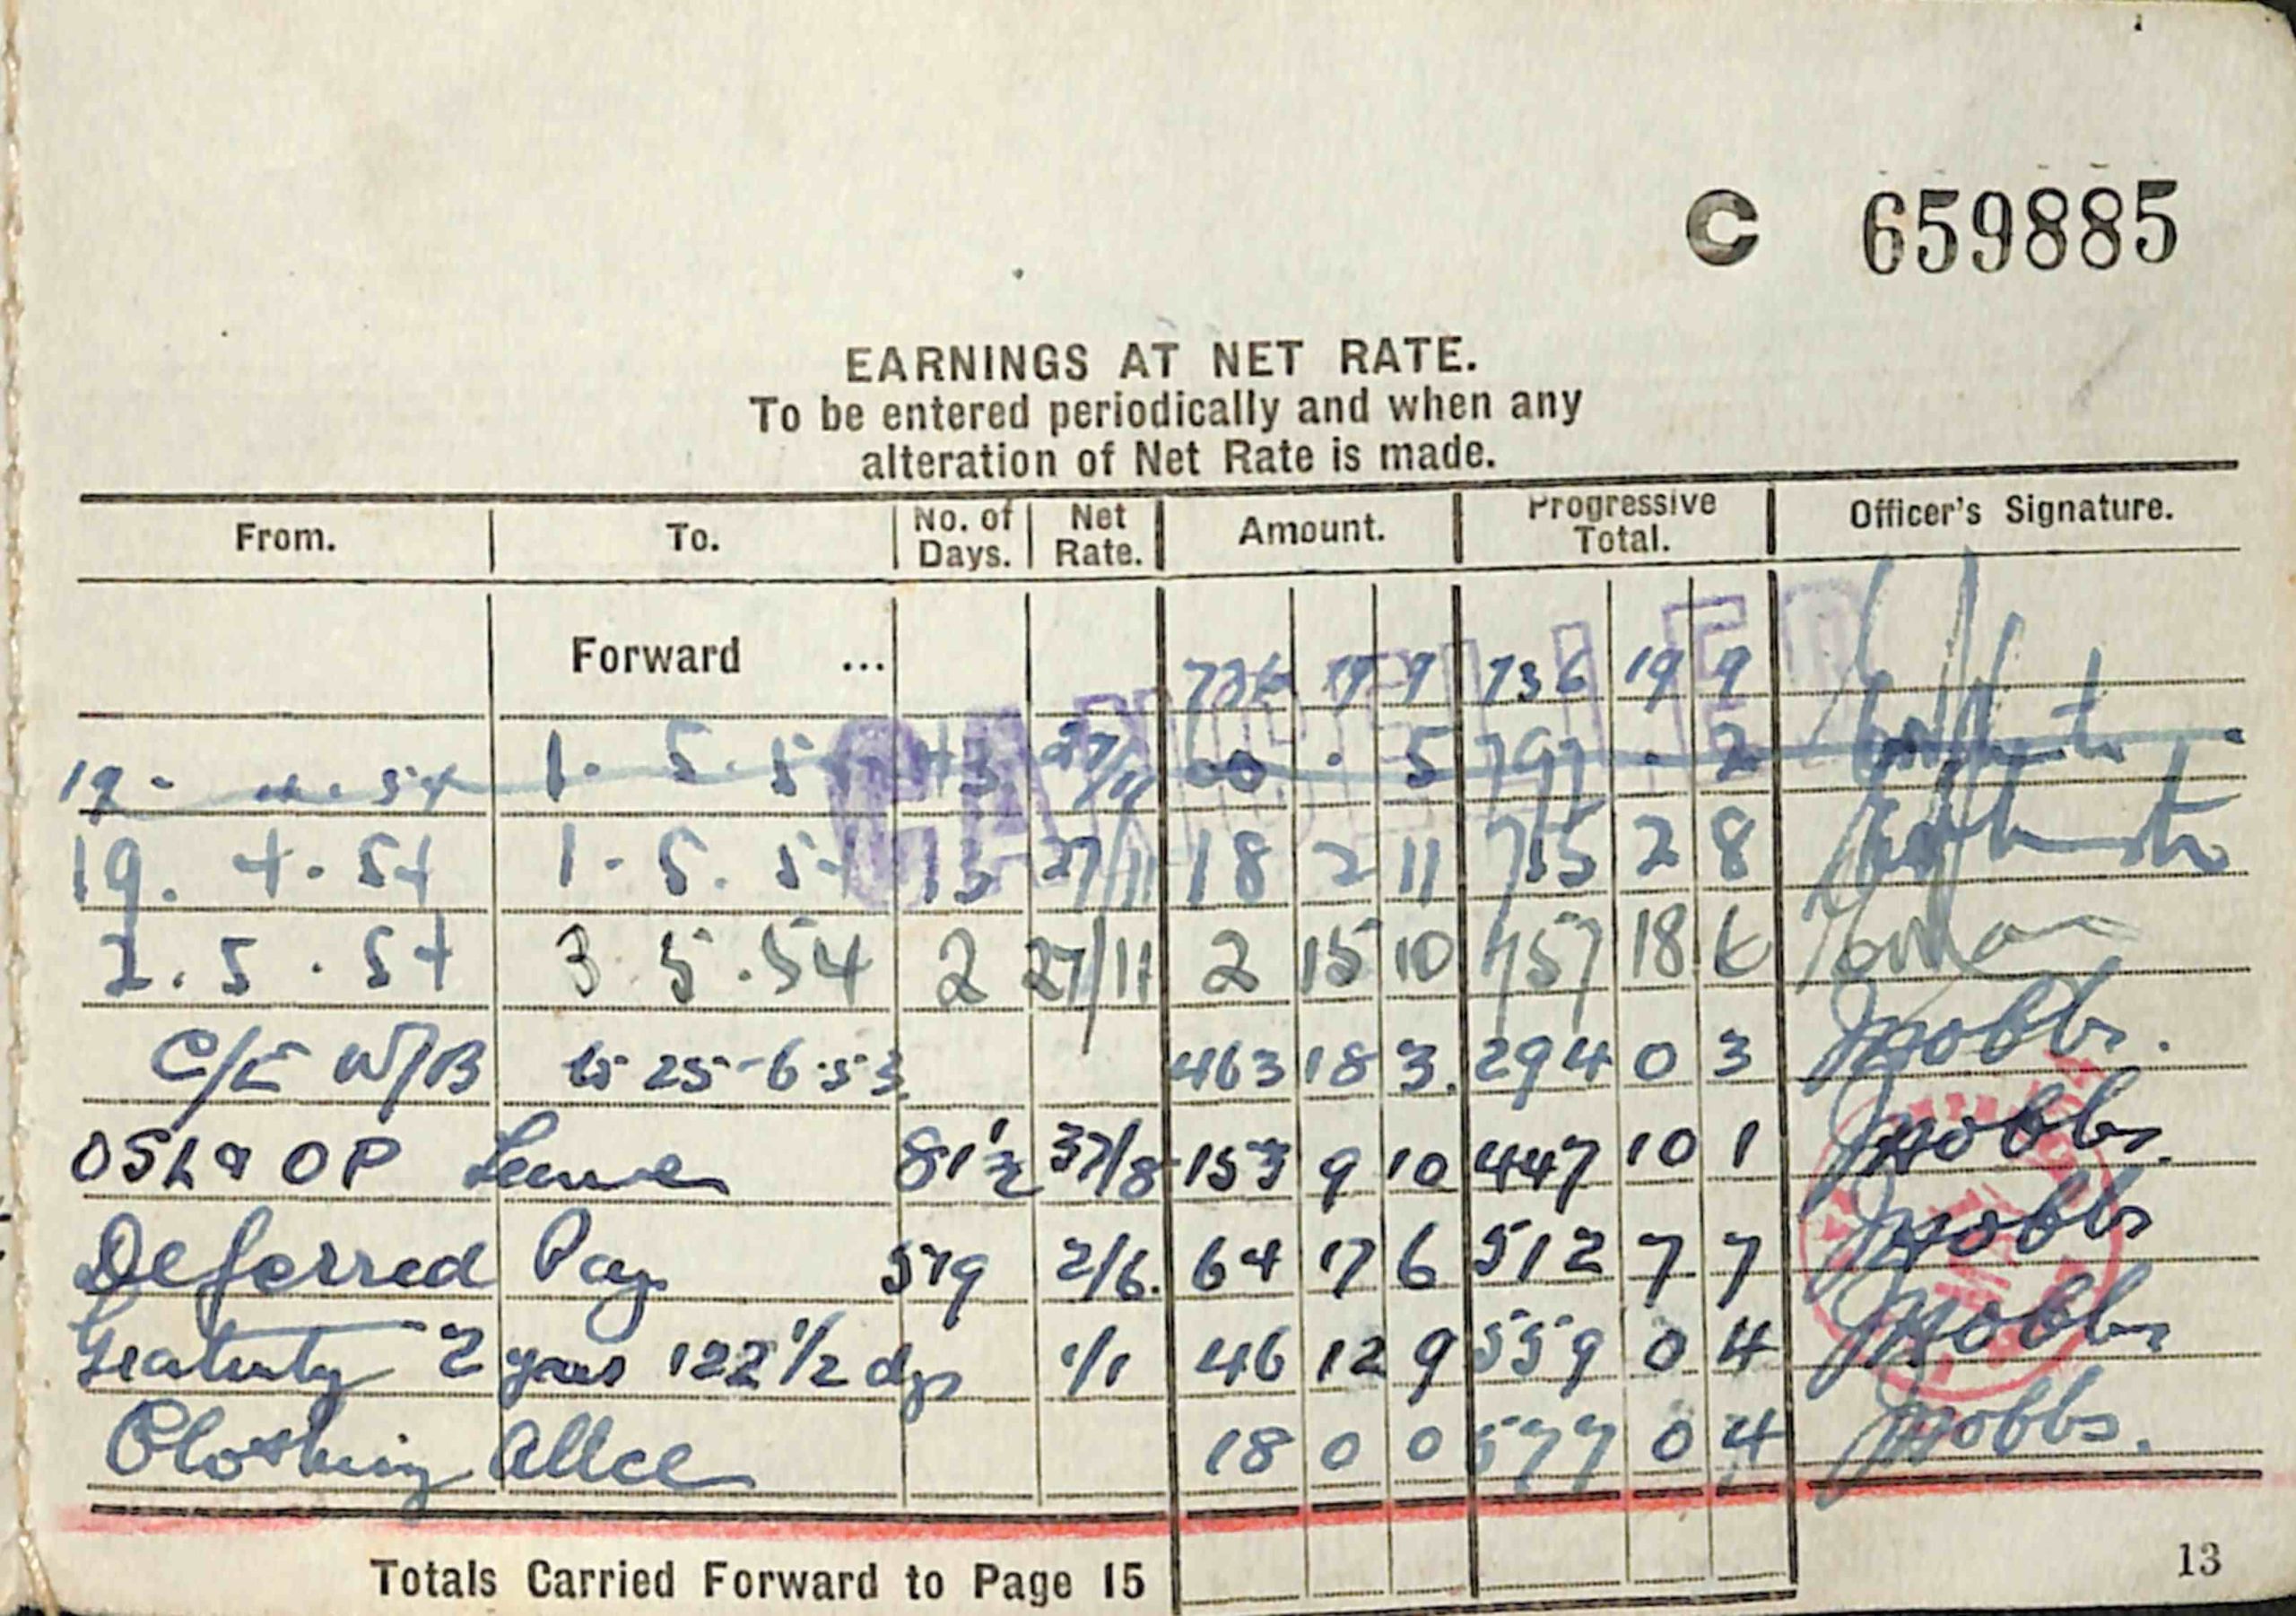 C 659885
EARNINGS AT NET RATE.
To be entered periodically and when any
alteration of Net Rate is made.
From. To. No. of Days. Net Rate. Amount. Progressive Total. Officer's Signature.
CANCELLED
Forward ... 736 19 9 736 19 9
19 - 54 1 - 5 . 5 43 27/11 60 . 5 797 . 2
19 . 4 . 54 1 - 5 . 54 13 27/11 18 2 11 755 2 8
2 . 5 . 54 3 5 . 54 2 27/11 2 15 10 757 18 6
C/E W/B to 25-6-53 463 18 3. 294 0 3 Mobbs.
OSL & OP Leave 81½ 37/8 153 9 10 447 10 1 Mobbs.
Deferred Pay 519 2/6. 64 17 6 512 7 7 Mobbs
Gratuity 2 years 122 1/2 dys 1/1 46 12 9 559 0 4 Mobbs
Clothing Allce 18 0 0 577 0 4 Mobbs.
Totals Carried Forward to Page 15
13